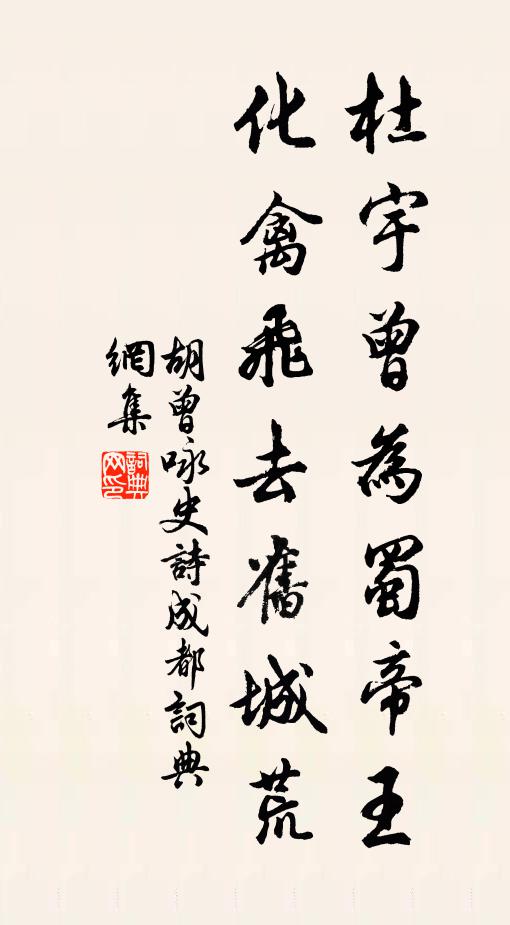 杜宇曾為蜀帝王
化禽飛去舊城荒
胡曾咏史詩成都詞典
網集
詞典
网印